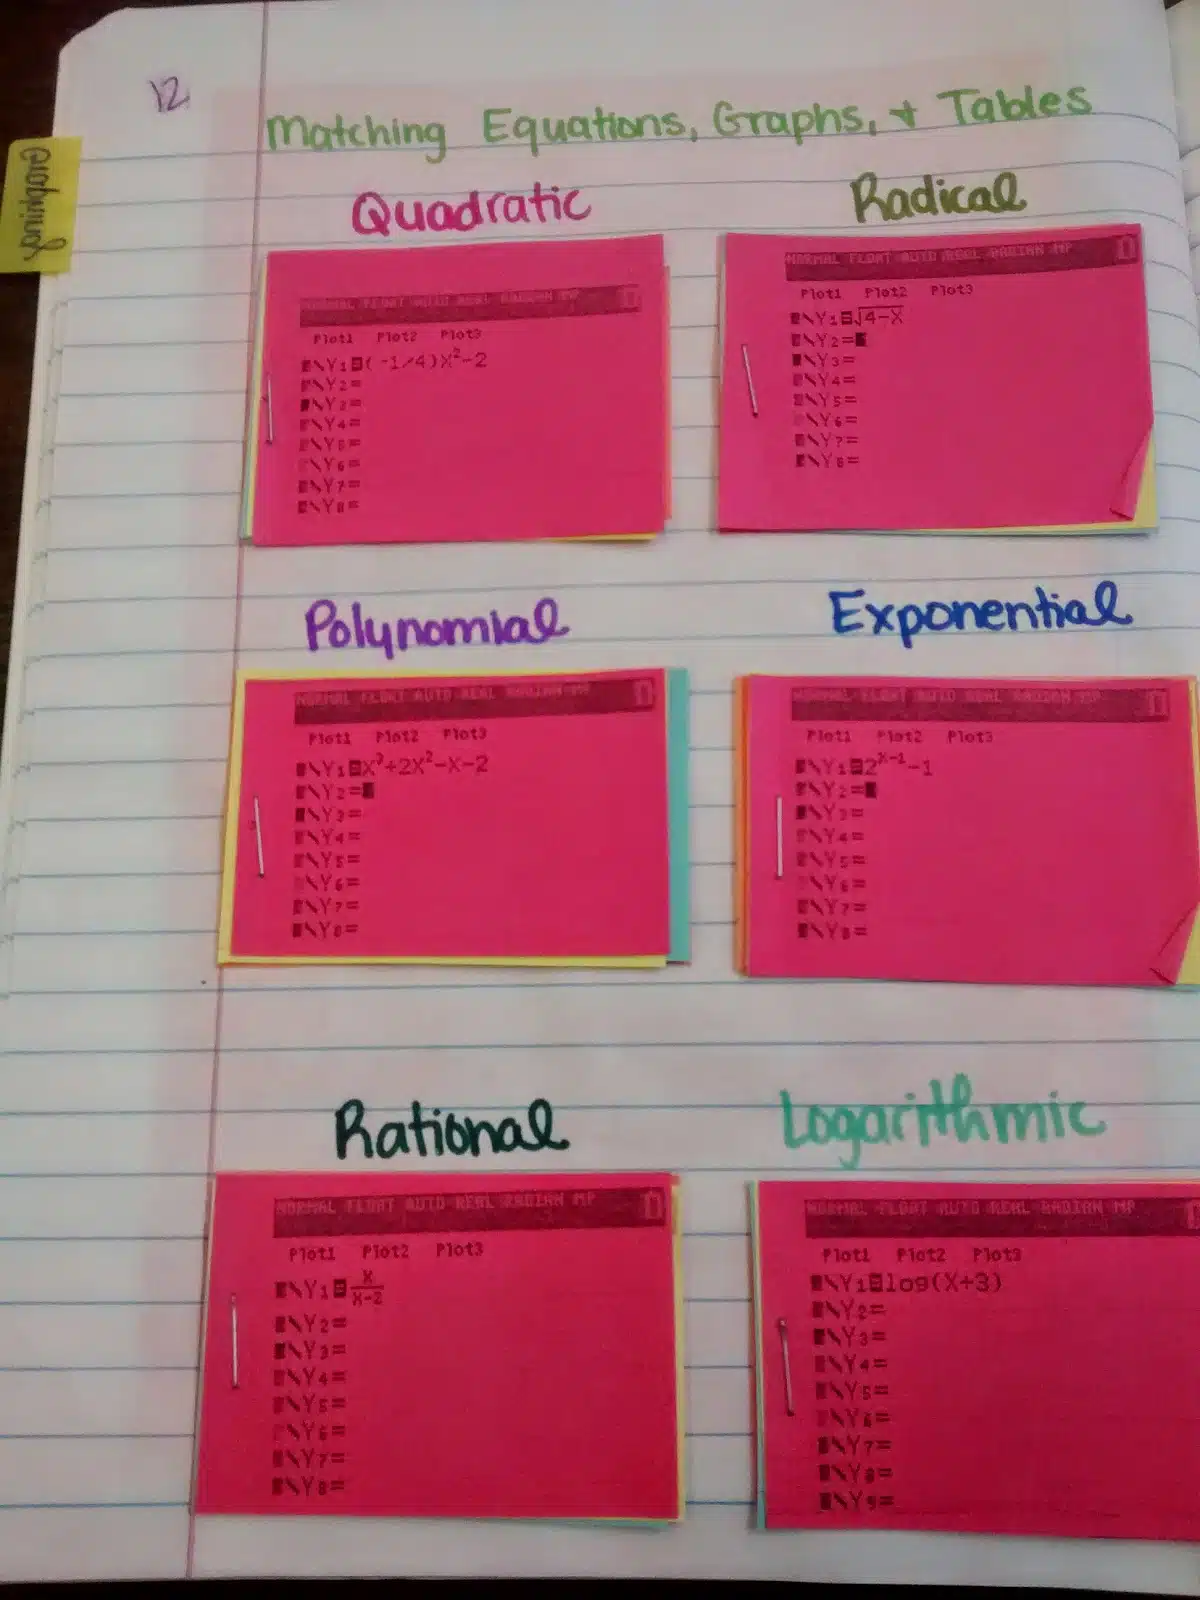 12
Matching Equations, Graphs, + Tables
Graphing
Quadratic
NORMAL FLOAT AUTO REAL RADIAN MP
Plot1 Plot2 Plot3
\Y1=(-1/4)X²-2
\Y2=
\Y3=
\Y4=
\Y5=
\Y6=
\Y7=
\Y8=
Radical
NORMAL FLOAT AUTO REAL RADIAN MP
Plot1 Plot2 Plot3
\Y1=√4-X
\Y2=
\Y3=
\Y4=
\Y5=
\Y6=
\Y7=
\Y8=
Polynomial
NORMAL FLOAT AUTO REAL RADIAN MP
Plot1 Plot2 Plot3
\Y1=X³+2X²-X-2
\Y2=
\Y3=
\Y4=
\Y5=
\Y6=
\Y7=
\Y8=
Exponential
NORMAL FLOAT AUTO REAL RADIAN MP
Plot1 Plot2 Plot3
\Y1=2^X-1-1
\Y2=
\Y3=
\Y4=
\Y5=
\Y6=
\Y7=
\Y8=
Rational
NORMAL FLOAT AUTO REAL RADIAN MP
Plot1 Plot2 Plot3
\Y1=X/X-2
\Y2=
\Y3=
\Y4=
\Y5=
\Y6=
\Y7=
\Y8=
Logarithmic
NORMAL FLOAT AUTO REAL RADIAN MP
Plot1 Plot2 Plot3
\Y1=log(X+3)
\Y2=
\Y3=
\Y4=
\Y5=
\Y6=
\Y7=
\Y8=
\Y9=